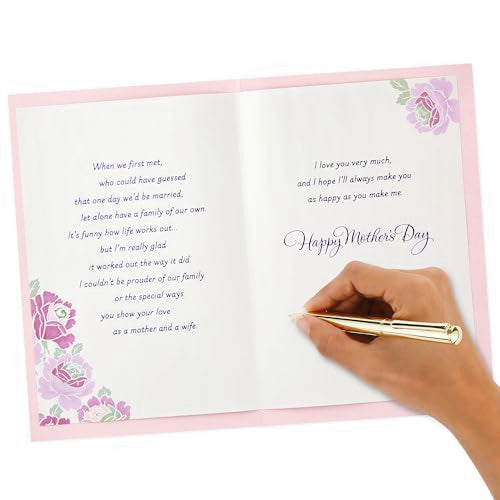 When we first met,
who could have guessed
that one day we'd be married,
let alone have a family of our own.
It's funny how life works out...
but I'm really glad
it worked out the way it did.
I couldn't be prouder of our family
or the special ways
you show your love
as a mother and a wife.
I love you very much,
and I hope I'll always make you
as happy as you make me.
Happy Mother's Day